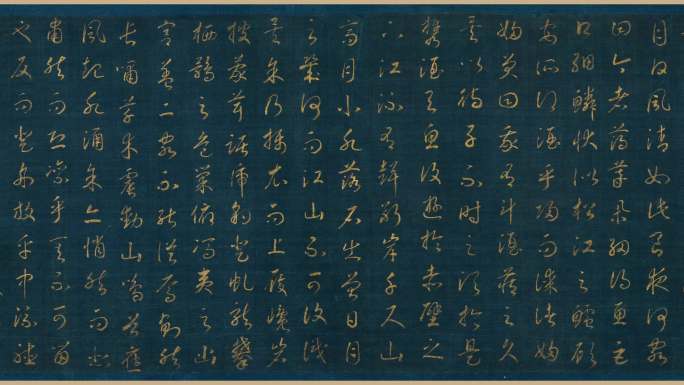 月白風清如此良夜何客
曰今者薄暮舉網得魚巨
口細鱗狀似松江之鱸顧
安所得酒乎歸而謀諸婦
婦曰我有斗酒藏之久
矣以待子不時之須於是
攜酒與魚復遊於赤壁之
下江流有聲斷岸千尺山
高月小水落石出曾日月
之幾何而江山不可復識
矣予乃攝衣而上履巉岩
披蒙茸踞虎豹登虬龍攀
栖鶻之危巢俯馮夷之幽
宮蓋二客不能從焉劃然
長嘯草木震動山鳴谷應
風起水涌予亦悄然而悲
肅然而恐凜乎其不可留
也反而登舟放乎中流聽